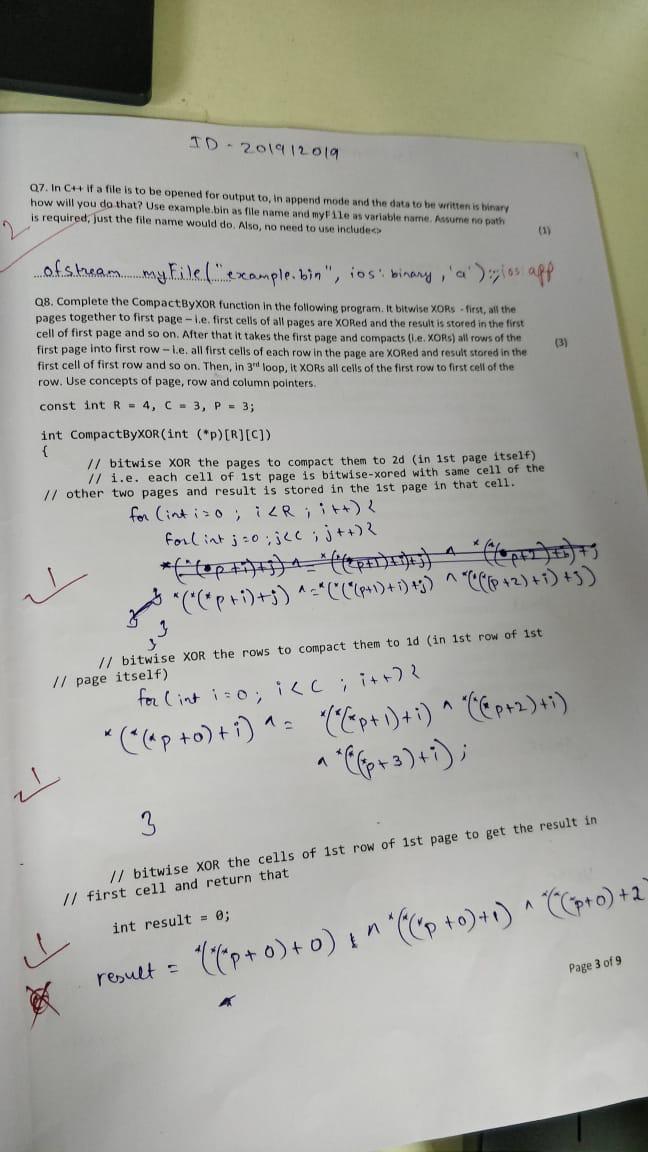 ID - 201912019
Q7. In C++ if a file is to be opened for output to, in append mode and the data to be written is binary
how will you do that? Use example.bin as file name and myFile as variable name. Assume no path
is required, just the file name would do. Also, no need to use include<>
(1)
2
ofstream myFile("example.bin", ios: binary, 'a'); ios: app
Q8. Complete the CompactByXOR function in the following program. It bitwise XORs - first, all the
pages together to first page – i.e. first cells of all pages are XORed and the result is stored in the first
cell of first page and so on. After that it takes the first page and compacts (i.e. XORs) all rows of the
first page into first row – i.e. all first cells of each row in the page are XORed and result stored in the
first cell of first row and so on. Then, in 3rd loop, it XORs all cells of the first row to first cell of the
row. Use concepts of page, row and column pointers.
(3)
const int R = 4, C = 3, P = 3;
int CompactByXOR(int (*p)[R][C])
{
// bitwise XOR the pages to compact them to 2d (in 1st page itself)
// i.e. each cell of 1st page is bitwise-xored with same cell of the
// other two pages and result is stored in the 1st page in that cell.
for (int i=0 ; i<R ; i++) {
for(int j=0 ; j<c ; j++) {
*(*(*p+i)+j) ^=*(*(*(p+1)+i)+j) ^ *(*(*(p+2)+i)+j)
}
}
1
// bitwise XOR the rows to compact them to 1d (in 1st row of 1st
// page itself)
for (int i=0; i<C ; i++) {
*(*(*p+0)+i) ^= *(*(*p+1)+i) ^ *(*(*p+2)+i)
^ *(*(*p+3)+i) ;
1
}
// bitwise XOR the cells of 1st row of 1st page to get the result in
// first cell and return that
int result = 0;
1
result = *(*(*p+0)+0) ^ *(*(*p+0)+1) ^ *(*(*p+0)+2
Page 3 of 9